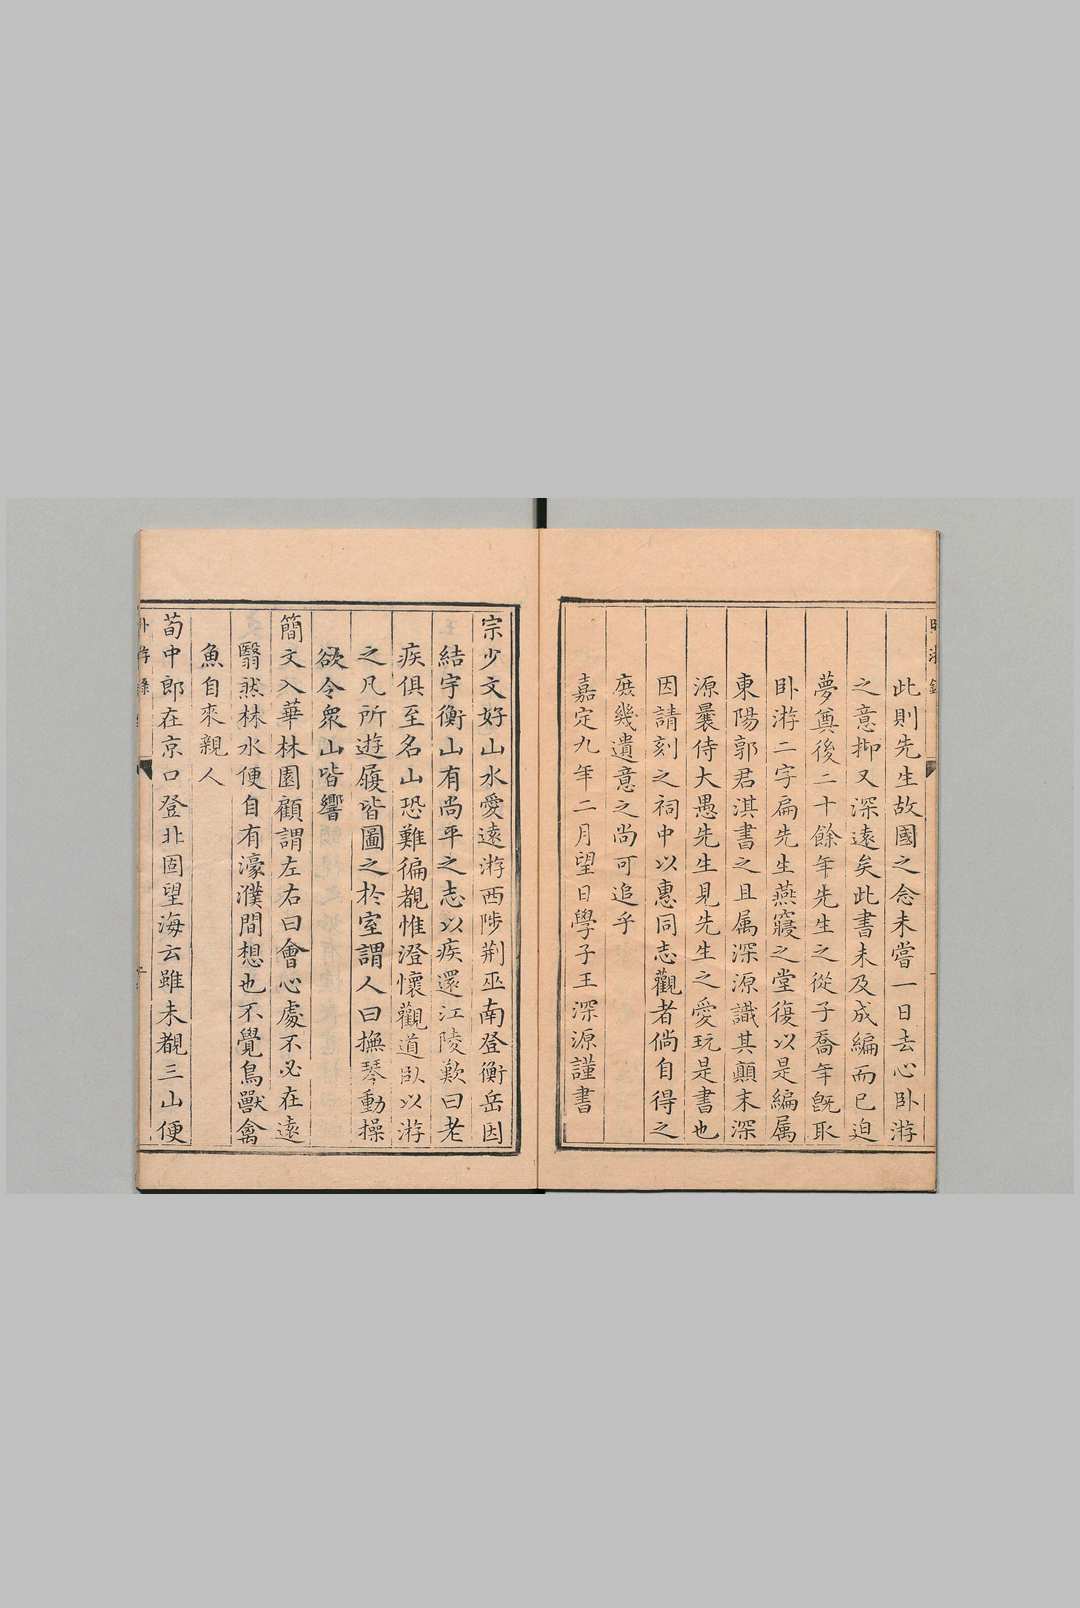 此則先生故國之念未嘗一日去心卧游
之意抑又深遠矣此書未及成編而已迫
夢奠後二十餘年先生之從子喬年旣取
卧游二字扁先生燕寢之堂復以是編属
東陽郭君淇書之且属深源識其顛末深
源曩侍大愚先生見先生之愛玩是書也
因請刻之祠中以惠同志觀者倘自得之
庶幾遺意之尚可追乎
嘉定九年二月望日學子王深源謹書
宗少文好山水愛遠游西陟荆巫南登衡岳因
結宇衡山有尚平之志以疾還江陵歎曰老
疾俱至名山恐難徧覩惟澄懷觀道臥以游
之凡所遊履皆圖之於室謂人曰撫琴動操
欲令衆山皆響
簡文入華林園顧謂左右曰會心處不必在遠
翳然林水便自有濠濮間想也不覺鳥獸禽
魚自來親人
荀中郎在京口登北固望海云雖未覩三山便